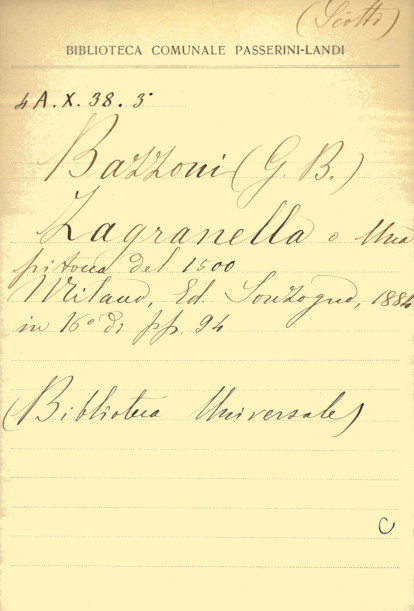 (Scotti)
BIBLIOTECA COMUNALE PASSERINI-LANDI
4 A. X. 38. 5
Bazzoni (G. B.)
Zagranella o Una
pitocca del 1500
Milano, Ed. Sonzogno, 1884
in 16° di pp. 94
(Biblioteca Universale)
C